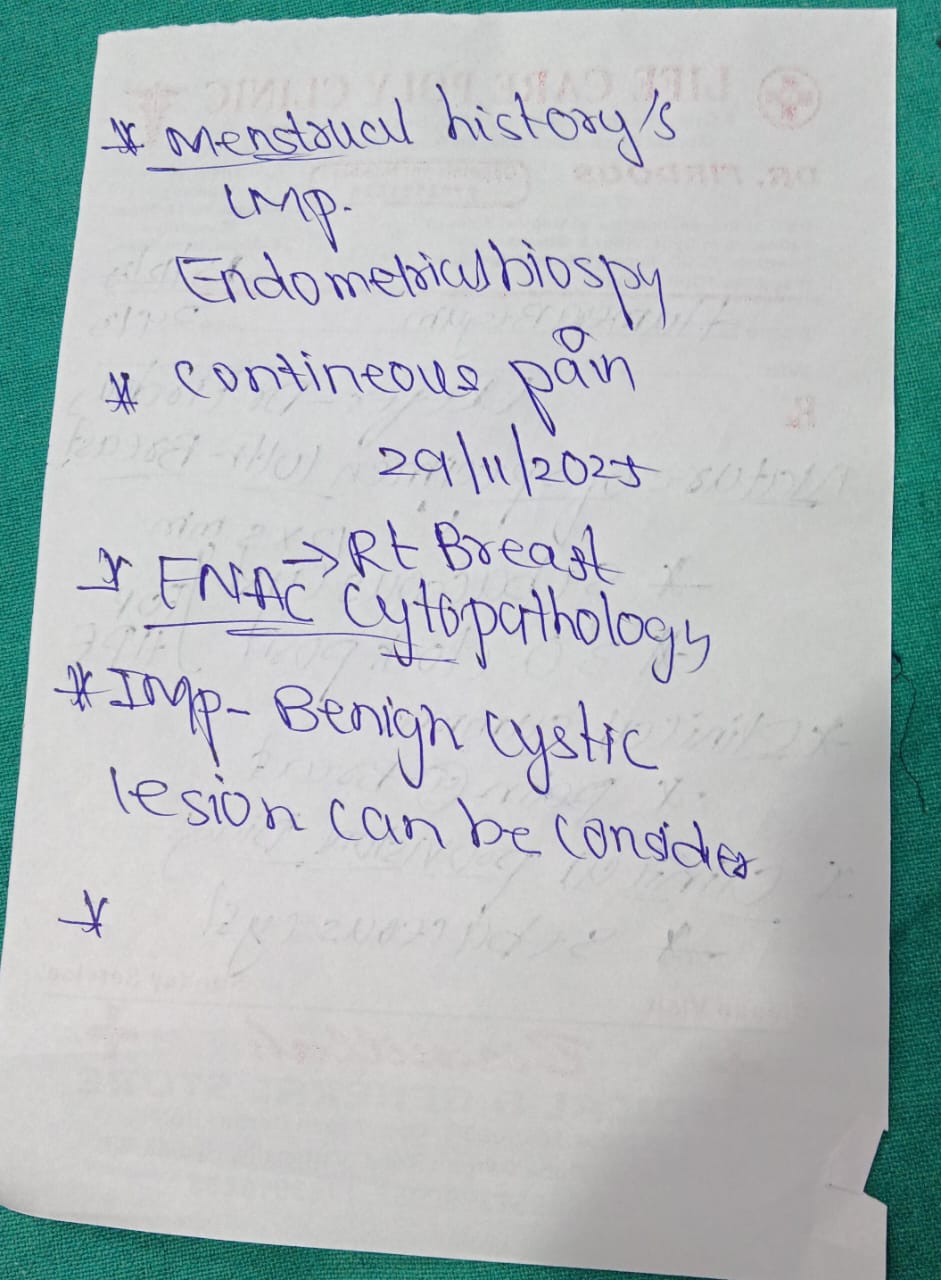 * Menstrual history's
Imp.
Endometrical biospy
* Contineous pain
29/11/2025
* FNAC → Rt Breast
Cytopathology
* Imp - Benign cystic
lesion can be consider
*